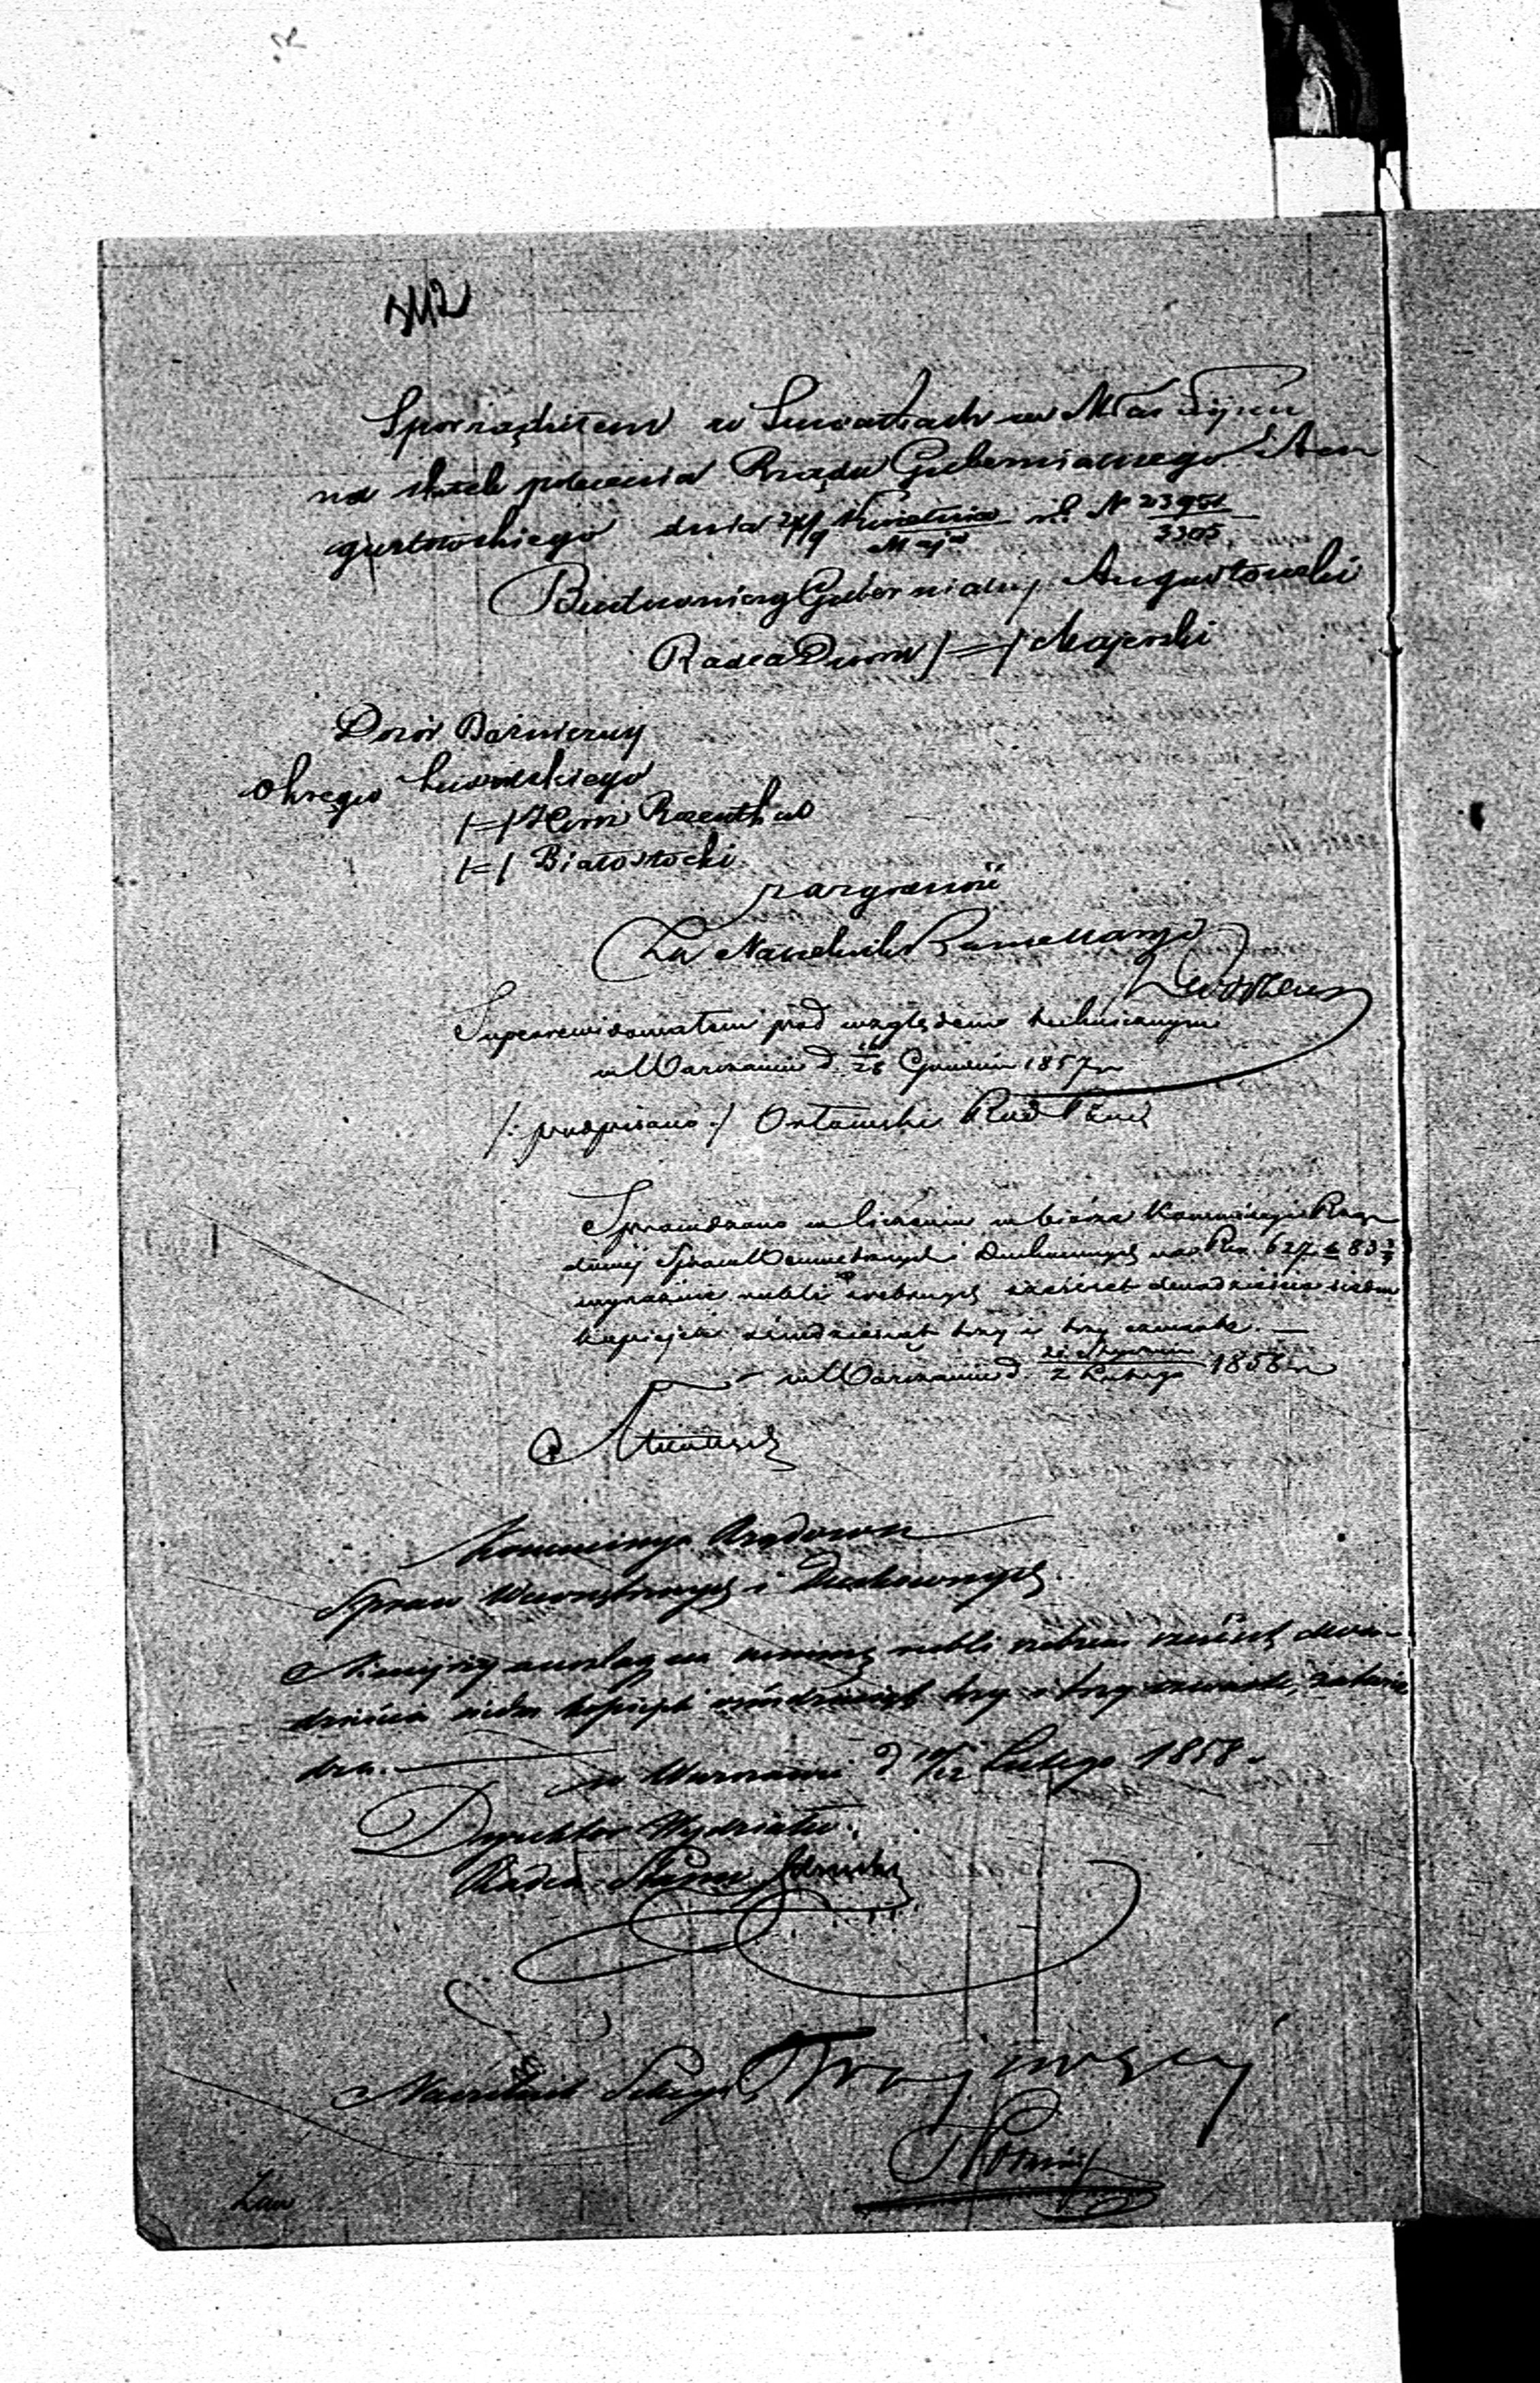 Sporządziłem w Suwałkach
na skutek polecenia Rządu Gubernialnego Au
gustowskiego dnia Kwietnia Maja r.b. N
Budowniczy Gubernialny Augustowski
Radca Dworu /=/ Majerski
Dozór Bóżniczny
Okręgu
/=/ Rozenthal
/=/ Białostocki
za zgodność
Za Naczelnika Kancellaryi
Superrewidowałem pod względem technicznym
w Warszawie d. 16/28 Grudnia 1857 r
/: podpisano :/ Orłowski Rad
Sprawdzono w liczeniu w biórze Kommissyi Rzą
dowej Spraw Wewnętrznych i Duchownych na Rsr. 627 k 83 3/4
wyraźnie rubli srebrnych sześćset dwadzieścia siedm
kopiejek ośmdziesiąt trzy i trzy czwarte. —
w Warszawie d. Stycznia 2 Lutego 1858 r
Kommissya Rządowa
Spraw Wewnętrznych i Duchownych
Niniejszy anszlag na summę rubli srebrem sześćset dwa-
dzieścia siedm kopiejek ośmdziesiąt trzy i trzy czwarte, zatwier
dza.
w Warszawie d Lutego 1858 r
Dyrektor Wydziału
Radca Stanu
Naczelnik Sekcyi